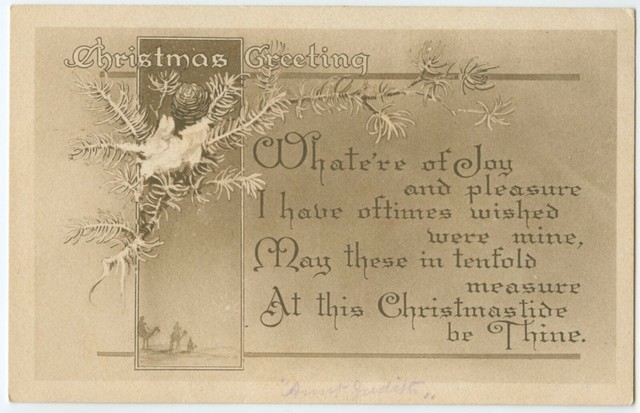 Christmas Greeting
Whate're of Joy
and pleasure
I have oftimes wished
were mine,
May these in tenfold
measure
At this Christmastide
be Thine.
"Aunt Judith"